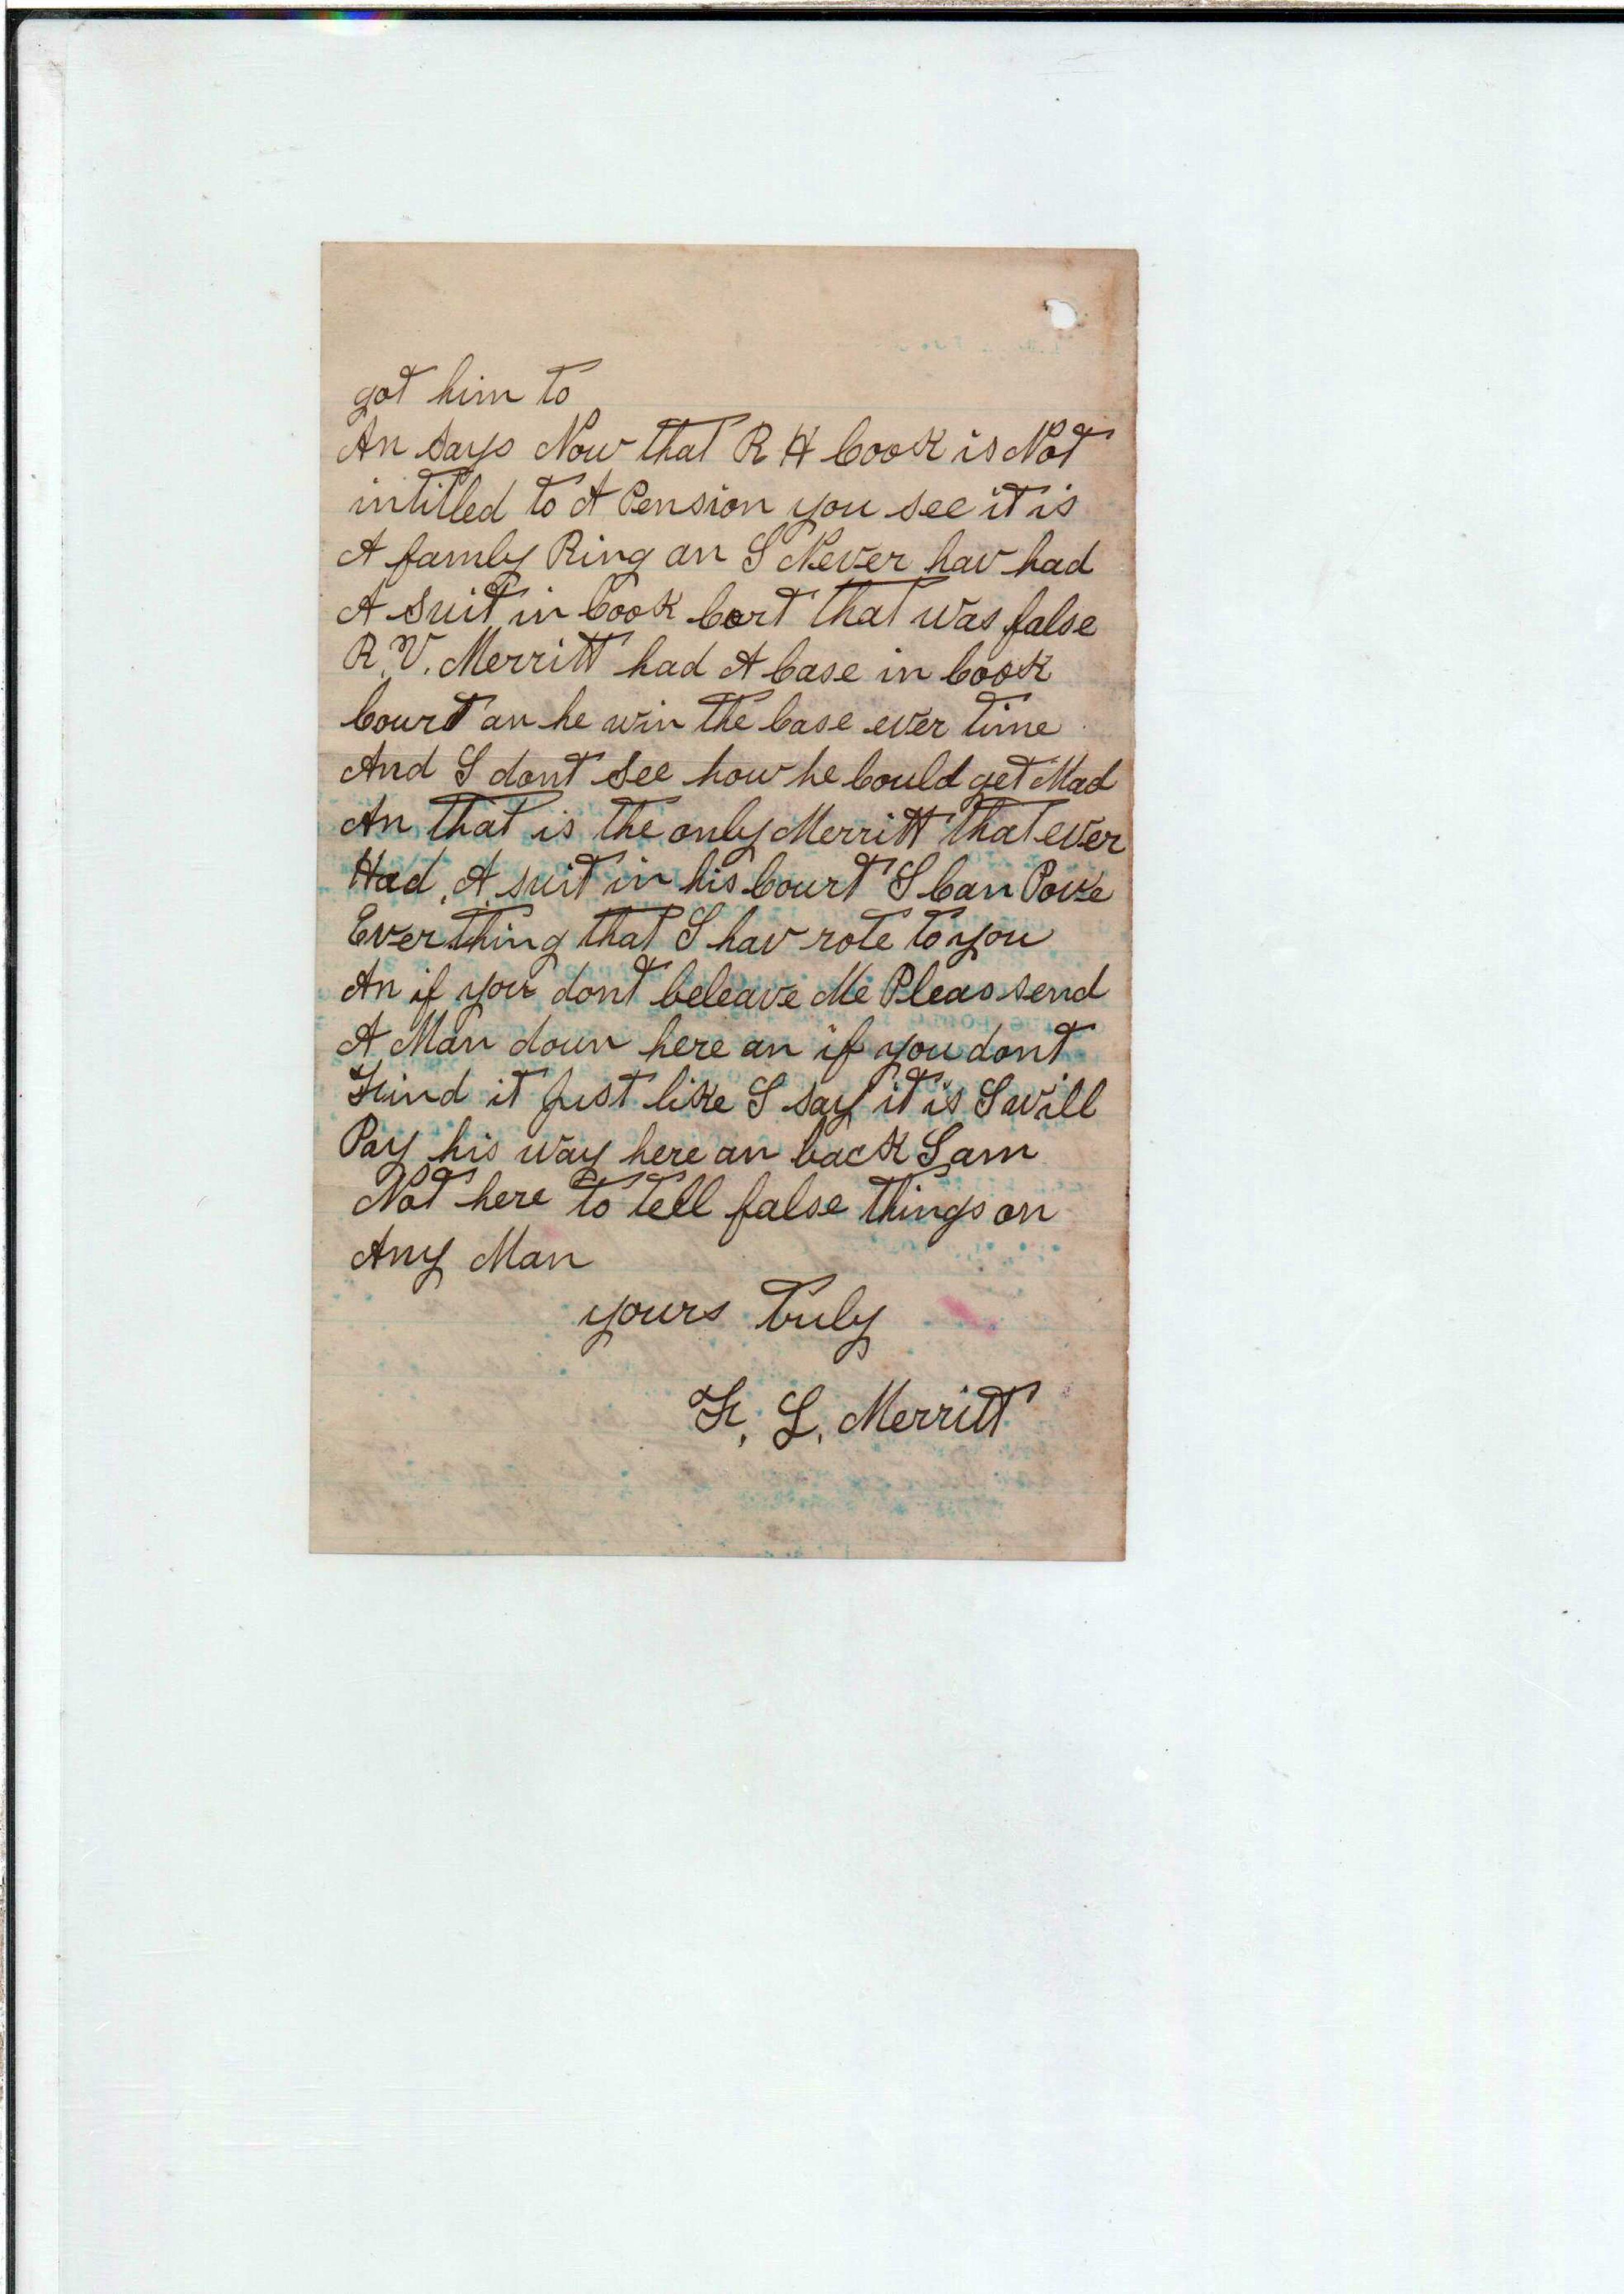 got him to
An says Now that R H Cook is Not
intitled to A Pension you see it is
A famly Ring an I Never hav had
A suit in Cook Cort that was false
R. V. Merritt had A Case in Cook
Court an he win the Case ever time
And I dont see how he Could get Mad
An that is the only Merritt that ever
Had A suit in his Court I Can Pove
Everthing that I hav rote to you
An if you dont beleave Me Pleas send
A Man doun here an if you dont
Find it just like I say it is I will
Pay his way here an back I am
Not here to tell false things on
Any Man
yours truly
F. L. Merritt